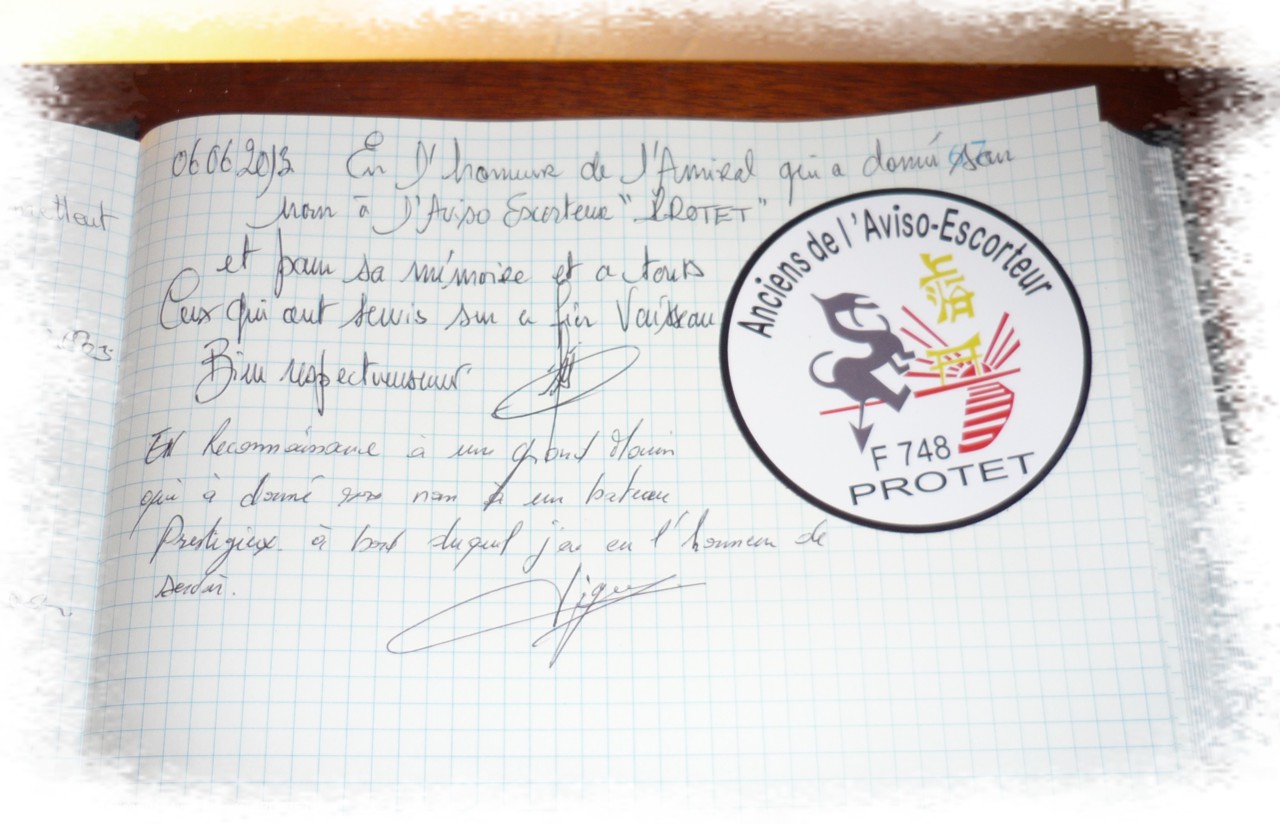 06.06.2013 En l'honneur de l'Amiral qui a donné son
nom à l'Aviso Escorteur "PROTET"
et pour sa mémoire et a touts
Ceux qui ont servis sur ce fier Vaisseau
Bien respectueusement
EN Reconnaissance à un grand Marin
qui à donné son nom à un bateau
Prestigieux à bord duquel j'ai eu l'honneur de
servir.
Anciens de l'Aviso-Escorteur
上海
F 748
PROTET